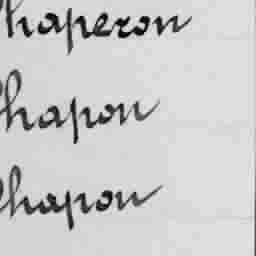 Chaperon
Chapon
Chapon